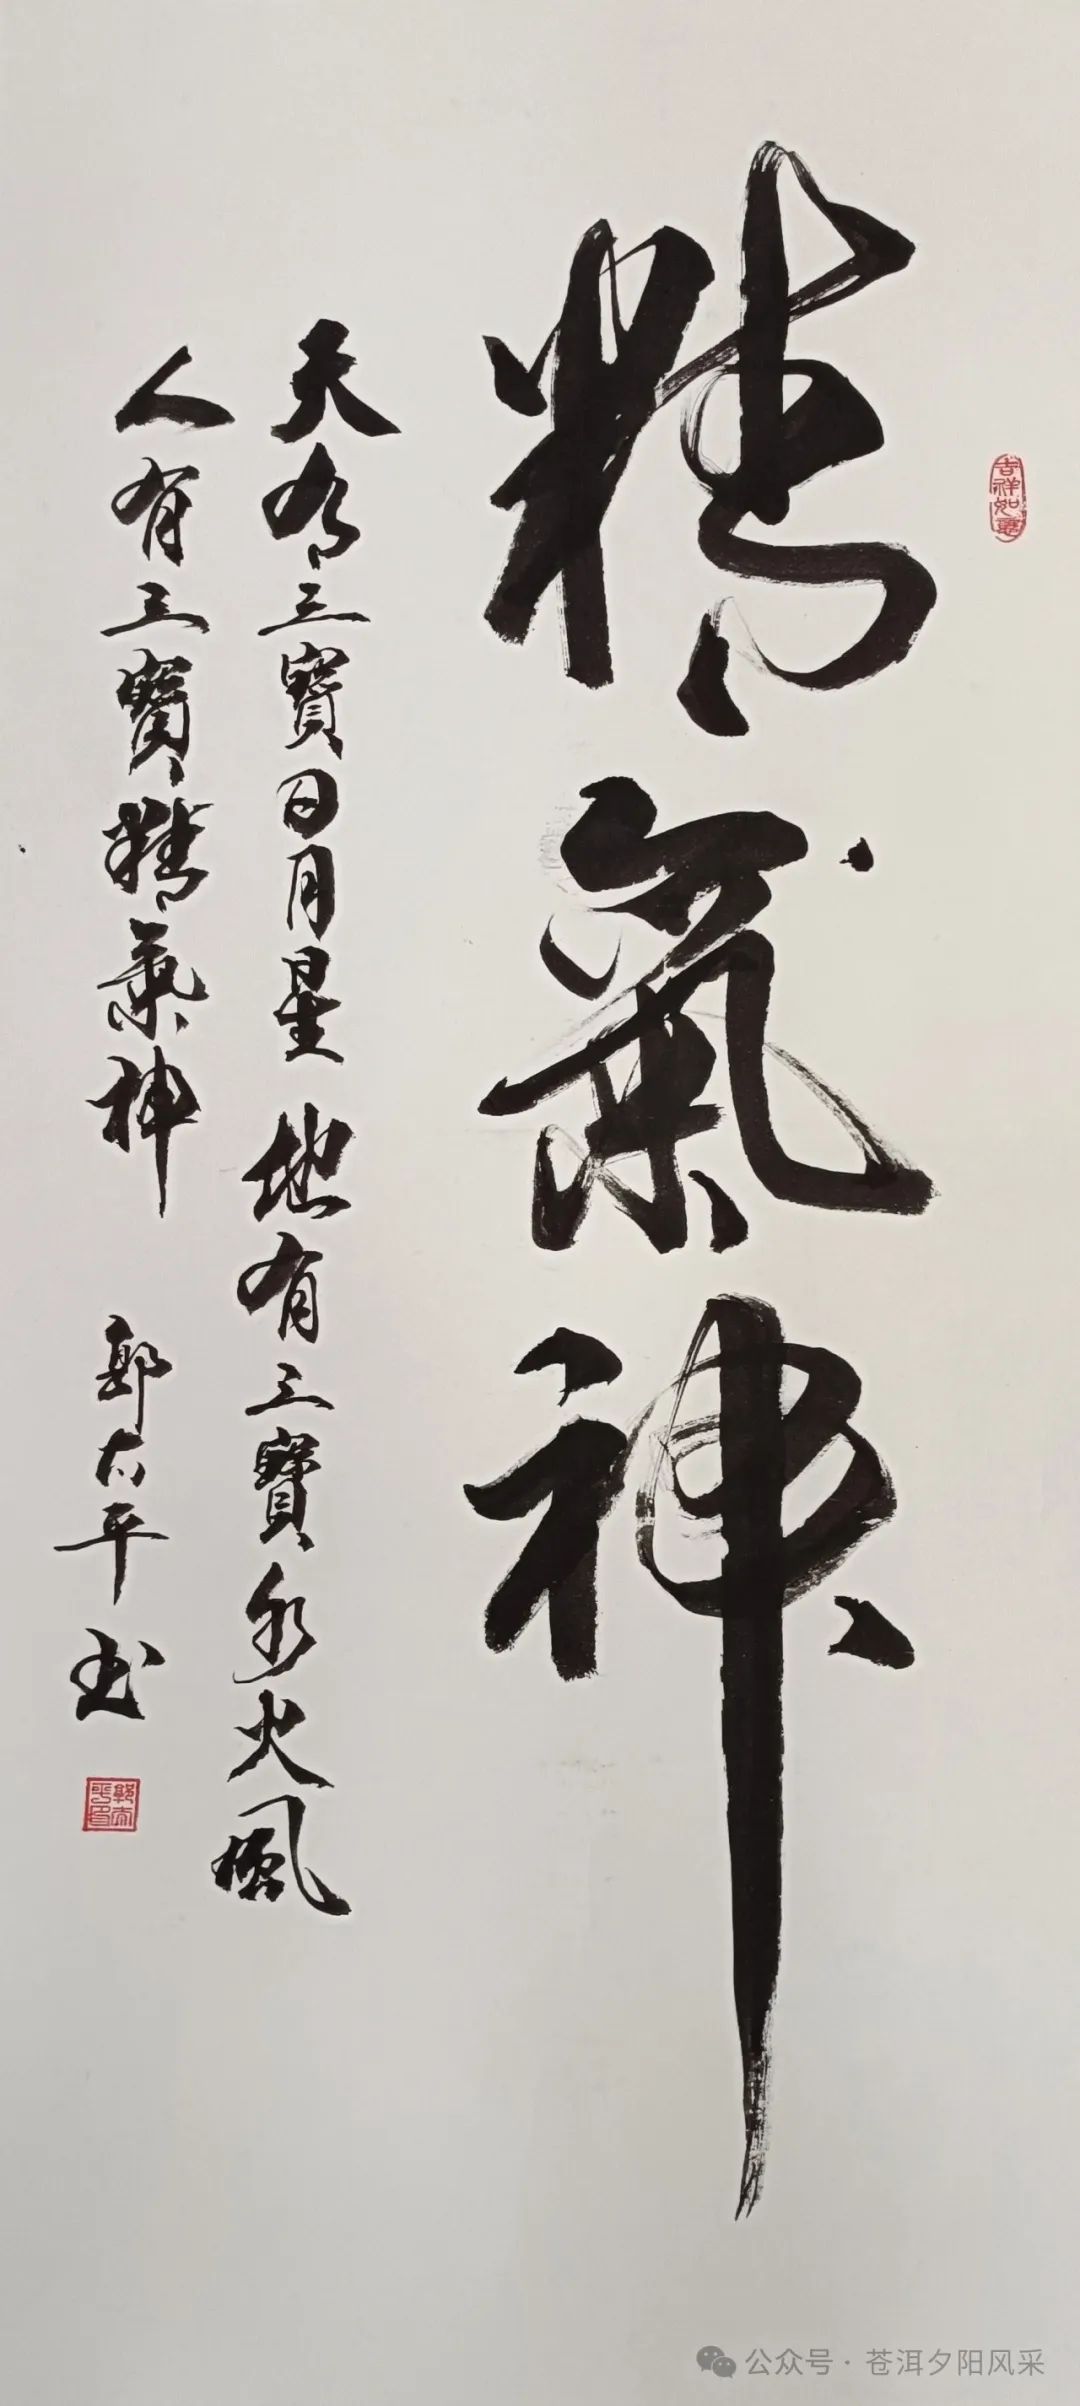 精氣神
天有三寶日月星地有三寶水火風
人有三寶精氣神 郭太平书
吉祥如意
郭太平印
公众号·苍洱夕阳风采